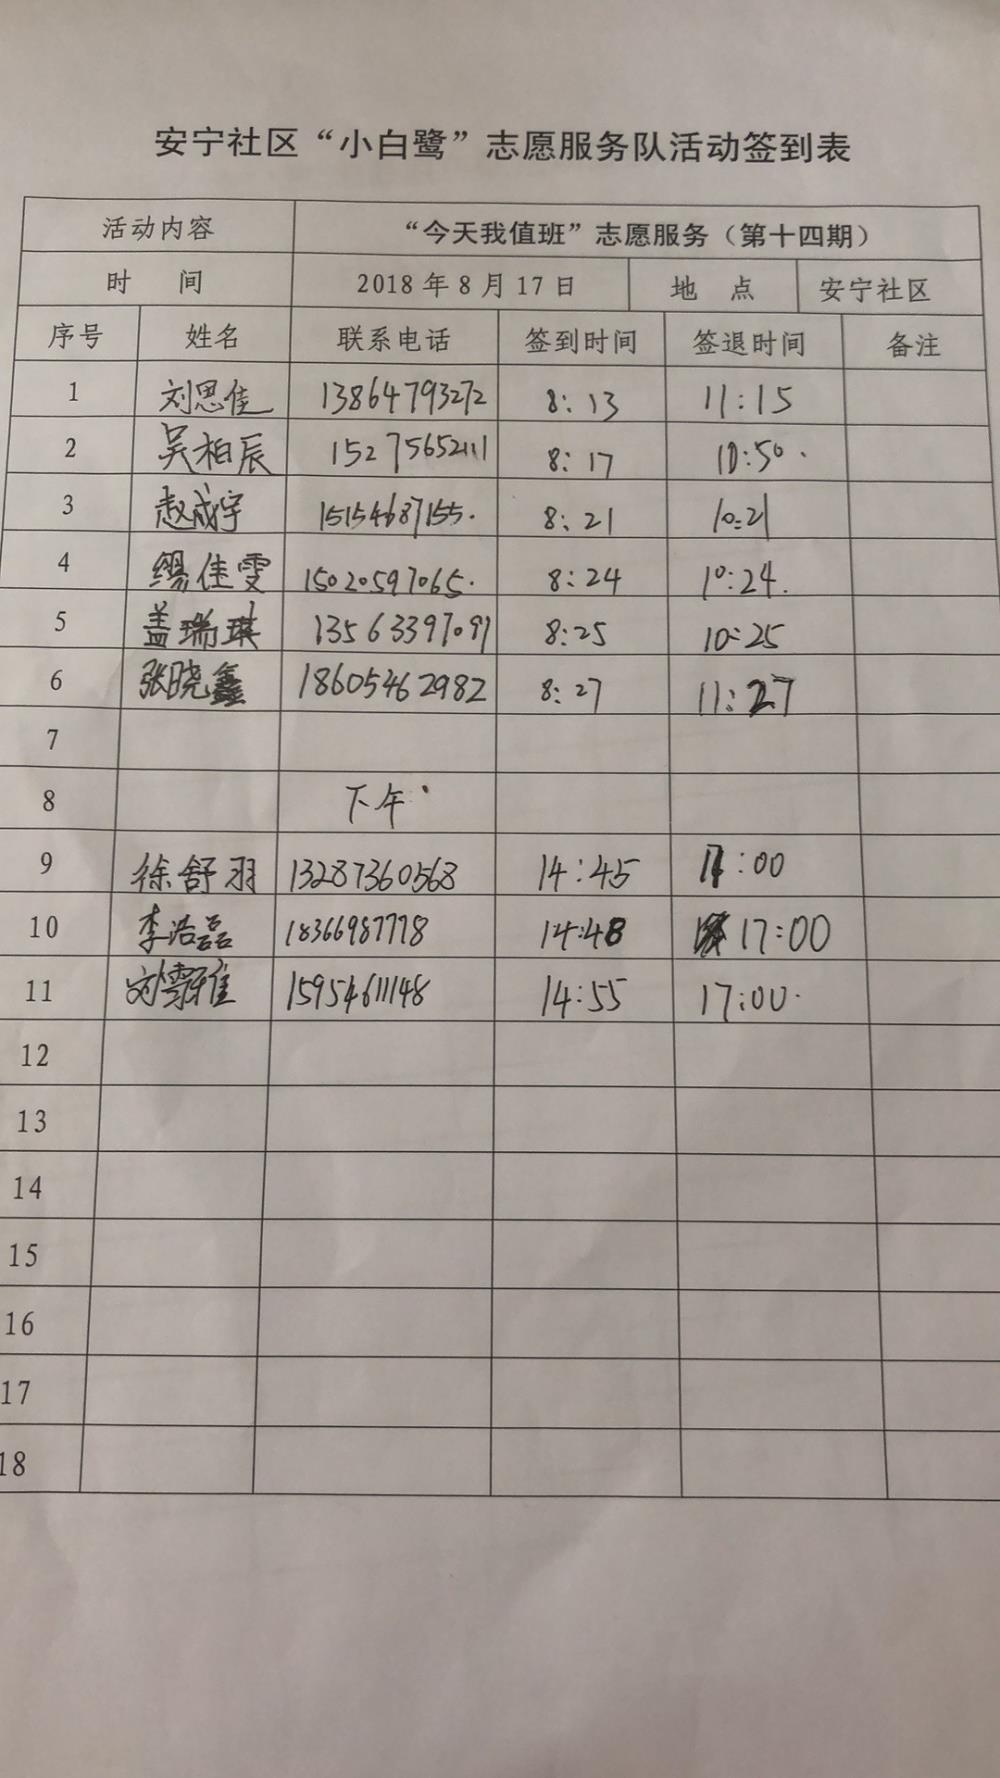 安宁社区“小白鹭”志愿服务队活动签到表
活动内容 “今天我值班”志愿服务（第十四期）
时 间 2018年8月17日 地 点 安宁社区
序号 姓名 联系电话 签到时间 签退时间 备注
1 刘思佳 13864793272 8:13 11:15
2 吴柏辰 15275652111 8:17 10:50.
3 赵成宇 15154687155. 8:21 10:21
4 缪佳雯 15020597065. 8:24 10:24.
5 盖瑞琪 13563397091 8:25 10:25
6 张晓鑫 18605462982 8:27 11:27
7
8 下午
9 徐舒羽 13287360568 14:45 :00
10 李浩磊 18366987778 14:48 17:00
11 刘雅 15954611148 14:55 17:00.
12
13
14
15
16
17
18